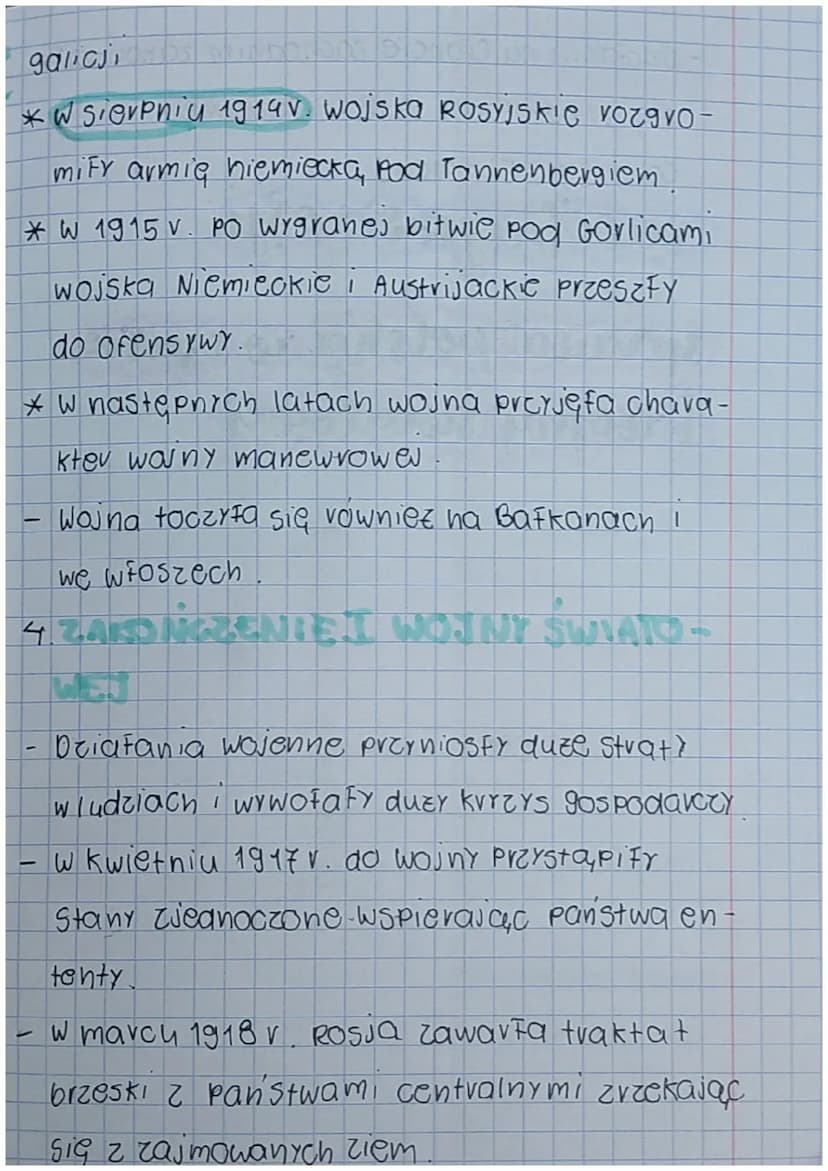 galicji
* W sierpniu 1914r. wojska Rosyjskie rozgro-
miły armię niemiecką pod Tannenbergiem.
* W 1915 r. po wygranej bitwie pod Gorlicami
wojska Niemieckie i Austrijackie przeszły
do ofensywy.
* W następnych latach wojna przyjęła chara-
kter wojny manewrowej.
- Wojna toczyła się również na Bałkanach i
we włoszech.
4. ZAKOŃCZENIE I WOJNY ŚWIATO-
WEJ
- Działania wojenne przyniosły duże straty
w ludziach i wywołały duży kryzys gospodarczy.
- W kwietniu 1917 r. do wojny przystąpiły
Stany zjednoczone wspierając państwa en-
tenty.
- W marcu 1918 r. Rosja zawarła traktat
brzeski z państwami centralnymi zrzekając
się z zajmowanych ziem.